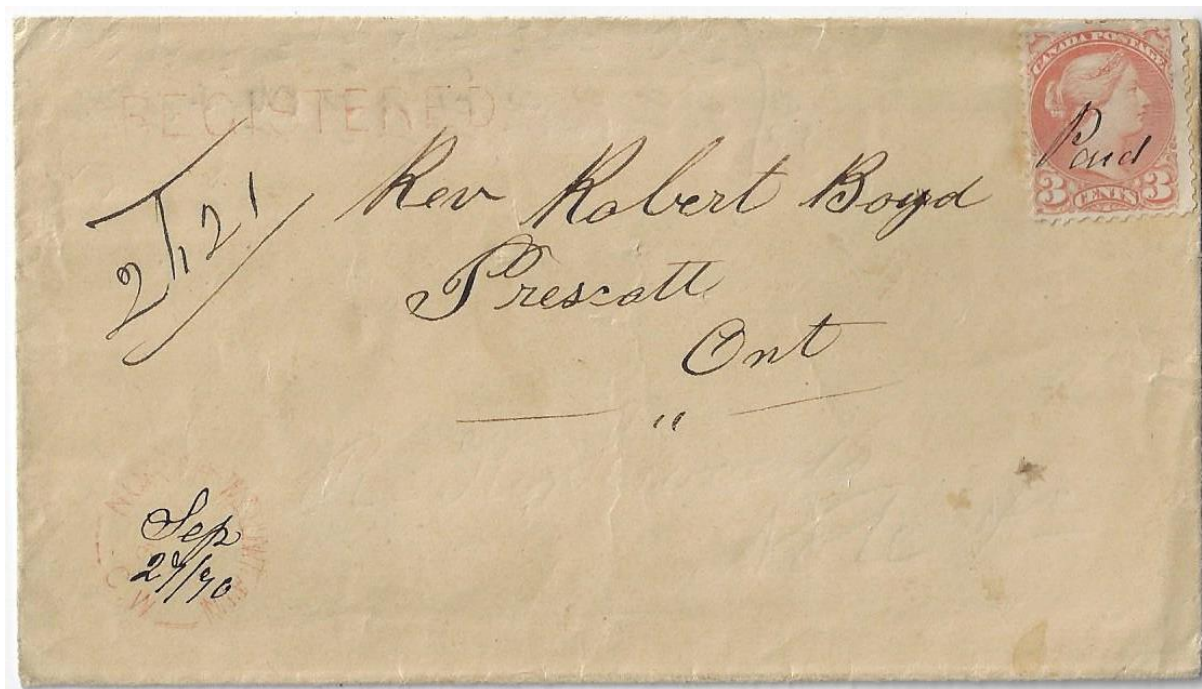 REGISTERED
CANADA POSTAGE
Paid
3 CENTS 3
Rev Robert Boyd
Prescott
Ont
"
Sep